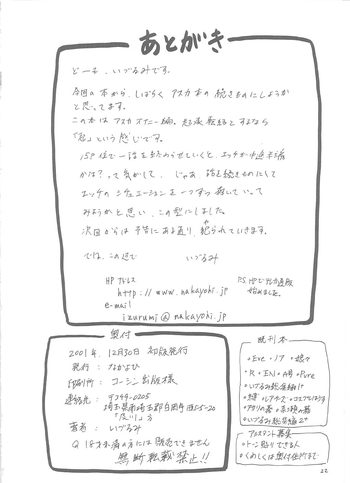 あとがき
どーも、いづるみです。
今回の本から、しばらくアスカ本の続きものにしようか
と思ってます。
この本はアスカオナニー編。起承転結とするなら
「起」という感じです。
15P位で一話を終わらせていくと、エッチが中途半端
かな?って気がして、じゃあ話を続きものにして
エッチのシチュエーションを一つずつ描いていって
みようかと思い、この型にしました。
次回からは予告にある通り、犯られていきます。
では、この辺で いづるみ
HPアドレス
http://www.nakayohi.jp
e-mail
izurumi@nakayohi.jp
P.S HPで通販
始めました。
奥付
2001年 12月30日 初版発行
発行: なかよひ
印刷所: コーシン出版様
連絡先: 〒349-0205
埼玉県南埼玉郡白岡町西5-5-20
著者: いづるみ
18才未満の方には販売できません
無断転載禁止!!
既刊本
・Eve ・17
・R ・EN ・A号 ・Pure
・いづるみ総集編1
・いづるみ総集編2
アシスタント募集
・トーン貼りできる人
・くわしくは奥付住所まで
22